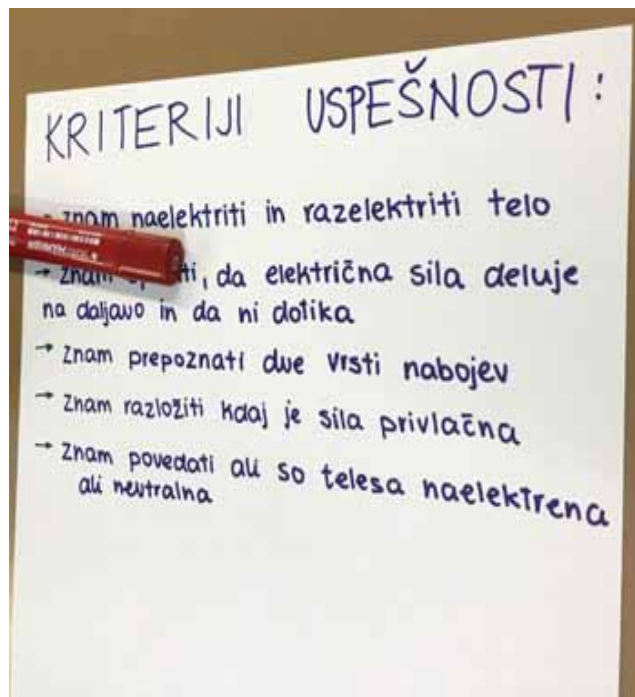 KRITERIJI USPEŠNOSTI:
znam naelektriti in razelektriti telo
→ Znam , da električna sila deluje
na daljavo in da ni dotika
→ Znam prepoznati dve vrsti nabojev
→ Znam razložiti kdaj je sila privlačna
→ Znam povedati ali so telesa naelektrena
ali nevtralna